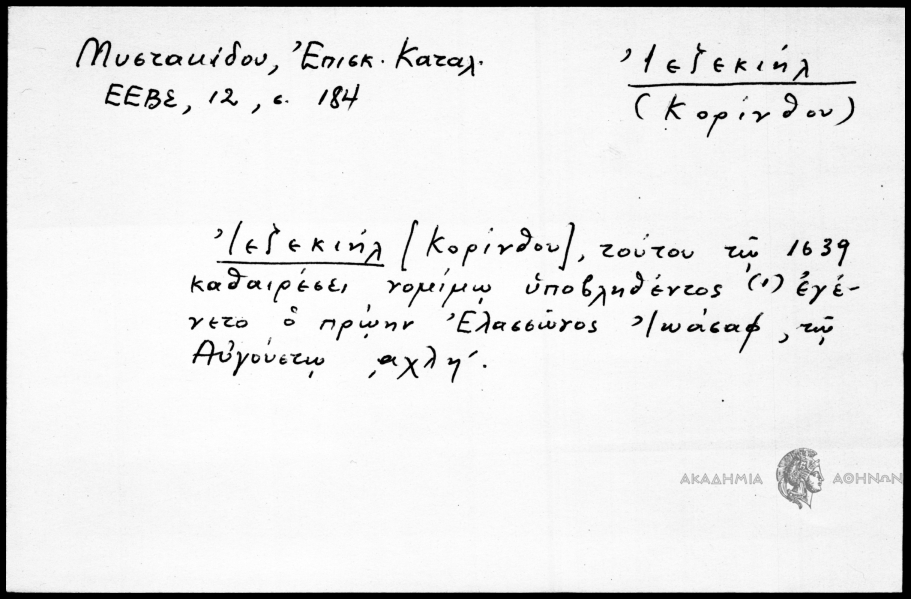 Μυστακίδου, Ἐπισκ. Καταλ.
ΕΕΒΣ, 12, σ. 184
Ἰεζεκιήλ
(Κορίνθου)
Ἰεζεκιήλ [Κορίνθου], τούτου τῷ 1639
καθαιρέσει νομίμῳ ὑποβληθέντος (1) ἐγέ-
νετο ὁ πρῴην Ἐλασσῶνος Ἰωάσαφ, τῷ
Αὐγούστῳ ͵αχλη΄.
ΑΚΑΔΗΜΙΑ ΑΘΗΝΩΝ